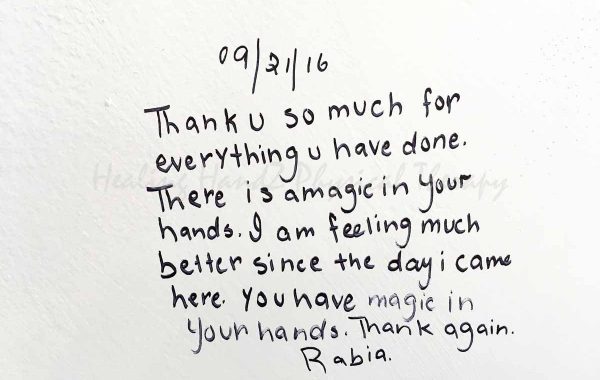 09/21/16
Thank u so much for
everything u have done.
Healing Hands Physical Therapy
There is a magic in your
hands. I am feeling much
better since the day i came
here. you have magic in
your hands. Thank again.
Rabia.